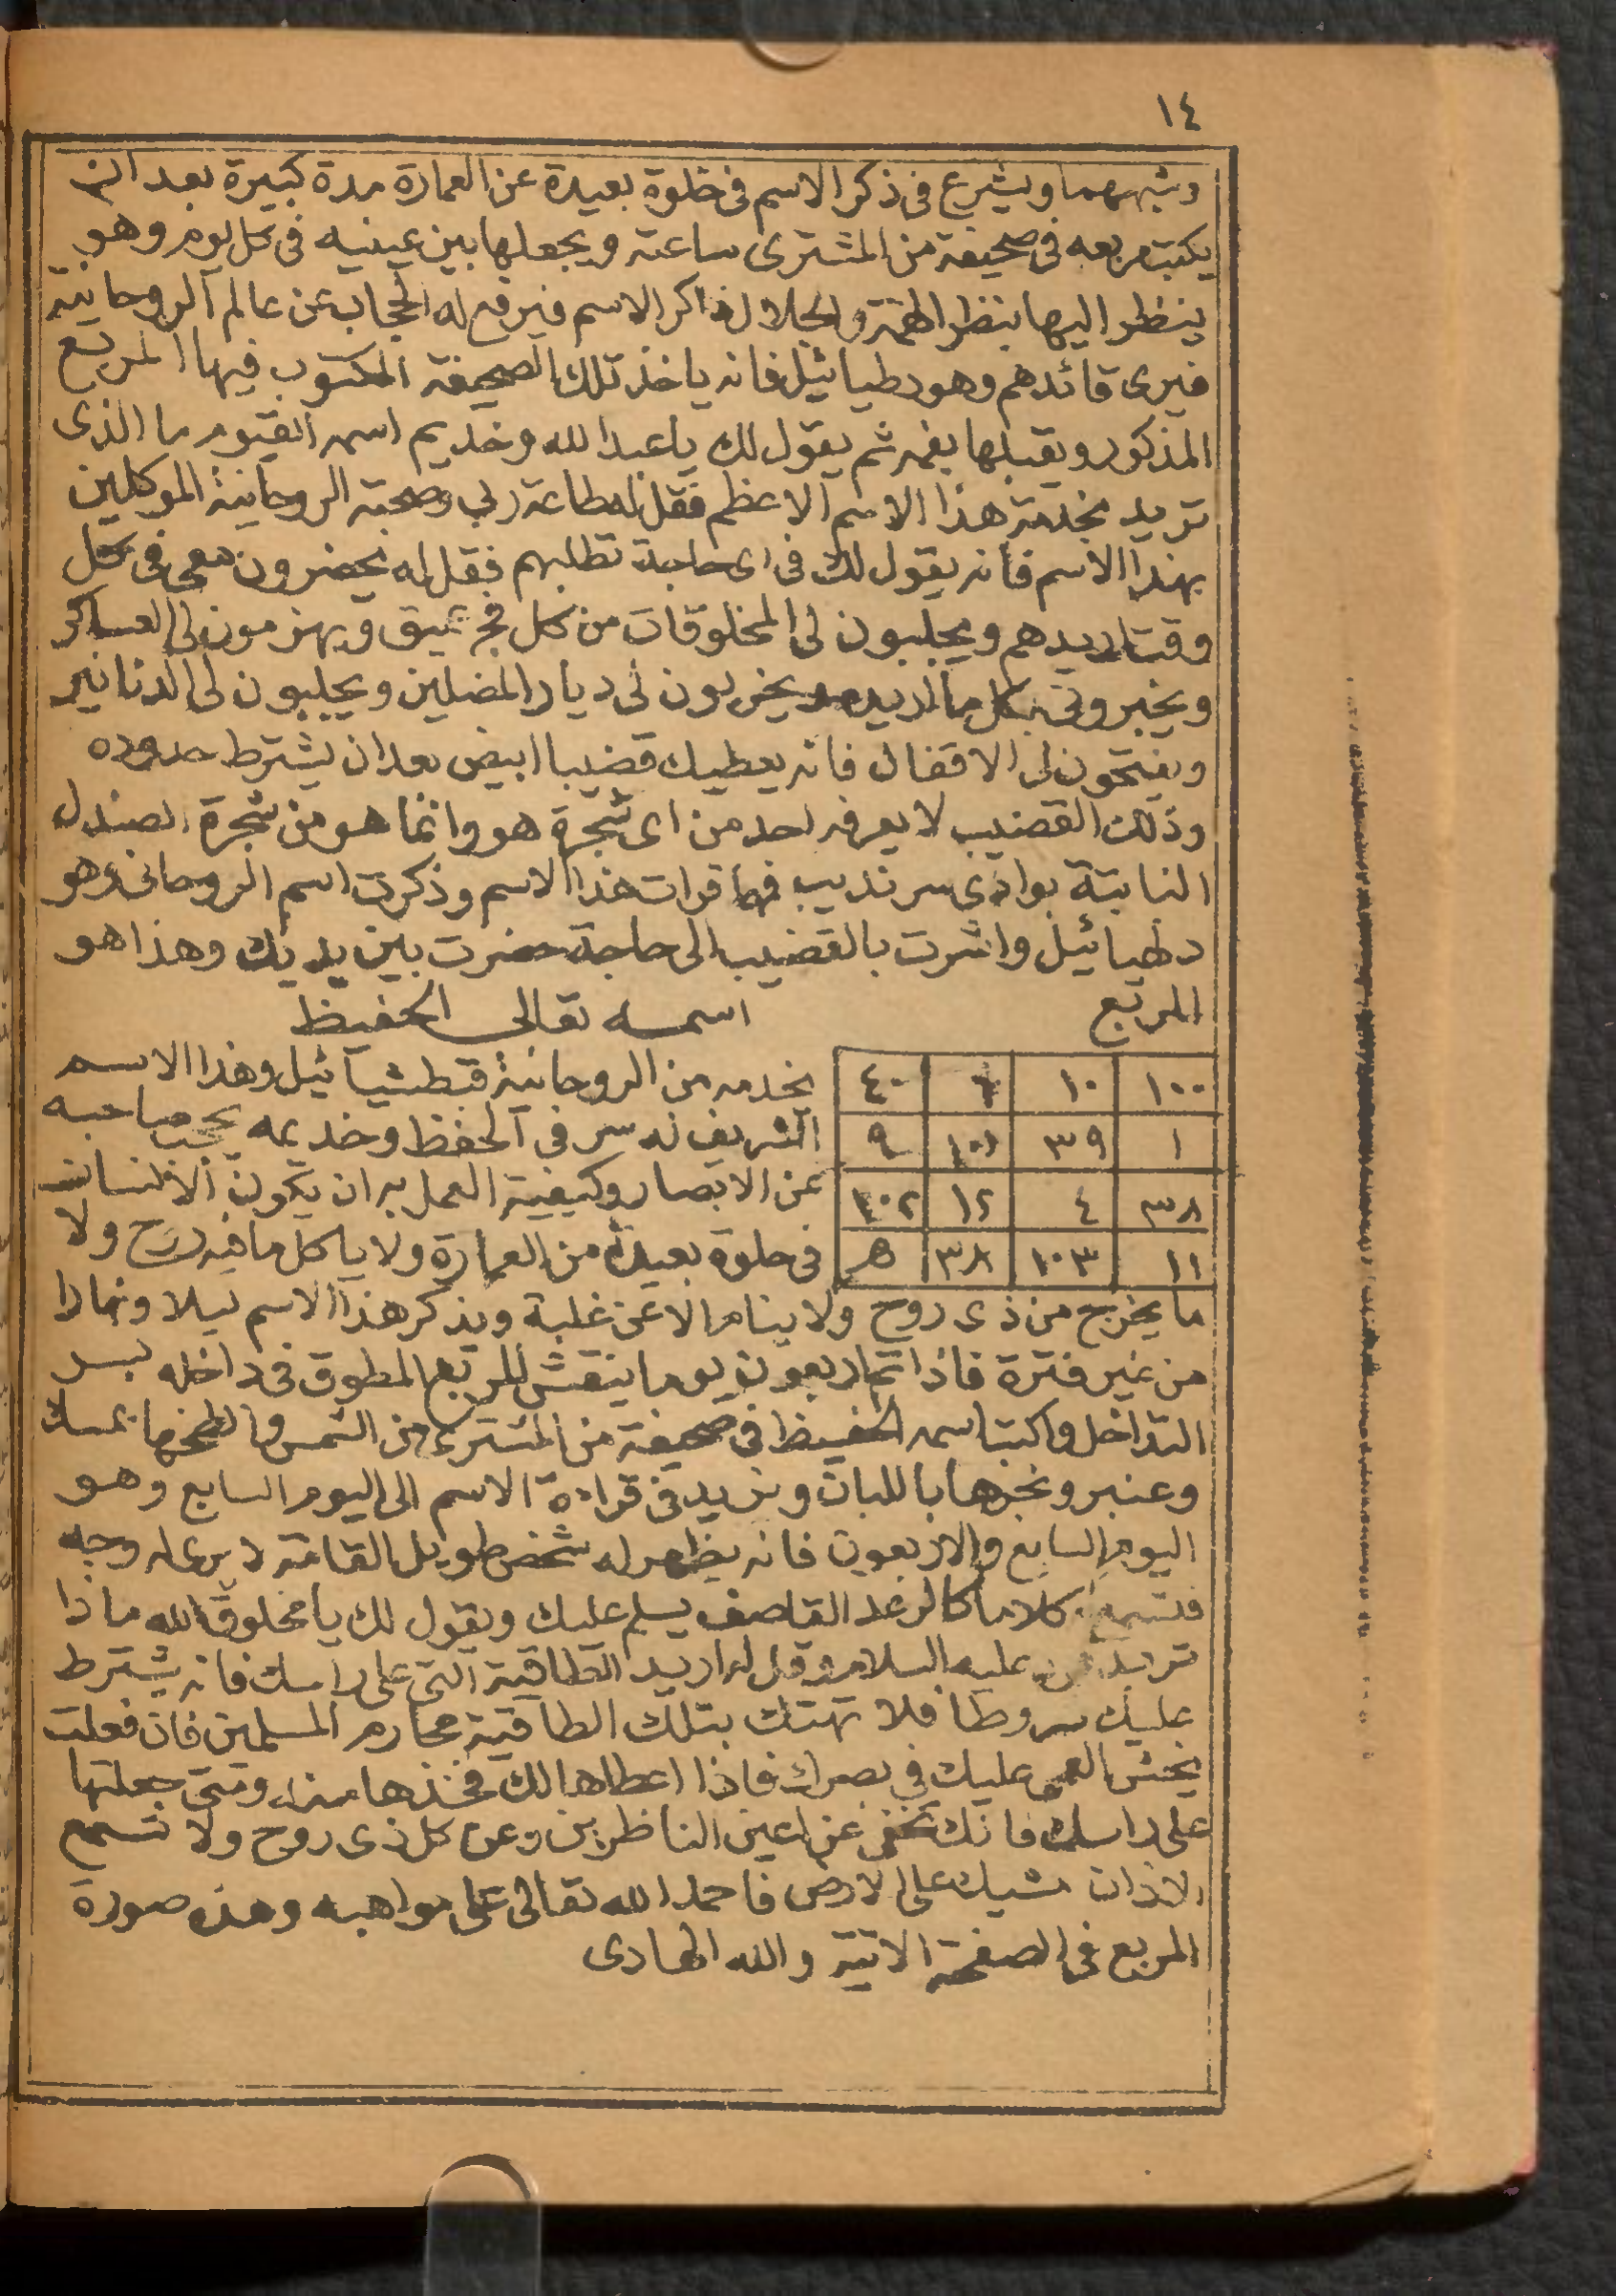 ١٤
وشبههما ويشرع فى ذكر الاسم فى خلوة بعيدة عن العمارة مدة كبيرة بعد ان
يكتب مربعه فى صحيفة من المشترى ساعته ويجعلها بين عينيه فى كل يوم وهو
ينظر اليها بنظر الهمة والجلال ذاكر الاسم فيرفع له الحجاب عن عالم الروحانية
فيرى قائدهم وهو دطيائيل فانه ياخذ تلك الصحيفة المكتوب فيها المربع
المذكور ويقبلها بفمه ثم يقول لك يا عبد الله وخديم اسمه القيوم ما الذى
تريد بخدمة هذا الاسم الاعظم فقل له طاعة ربى وصحبة الروحانية الموكلين
بهذا الاسم فانه يقول لك فى اى حاجة تطلبهم فقل له يحضرون معى فى كل
وقت اريدهم ويجلبون لى المخلوقات من كل فج عميق ويهزمون لى العساكر
ويخبرونى بكل ما اريده ويخربون لى ديار المضلين ويجلبون لى الدنانير
ويفتحون لى الاقفال فانه يعطيك قضيبا ابيض بعد ان يشترط حدوده
وذلك القضيب لا يعرفه احد من اى شجرة هو وانما هو من شجرة الصندل
النابتة بوادى سرنديب فمهما قرات هذا الاسم وذكرت اسم الروحانى وهو
دطيائيل واشرت بالقضيب الى حاجة حضرت بين يديك وهذا هو
المربع اسمه تعالى الحفيظ
١٠٠ ١٠ ٦ ٤٠
١ ٣٩ ١٠١ ٩
٣٨ ٤ ١٢ ١٠٢
١١ ١٠٣ ٣٨ ٥
يخدمه من الروحانية قبطشيائيل وهذا الاسم
الشريف له سر فى الحفظ وخديمه يحجب صاحبه
عن الابصار وكيفية العمل به ان يكون الانسان
فى خلوة بعيدة من العمارة ولا ياكل ما فيه روح ولا
ما يخرج من ذى روح ولا ينام الا عن غلبة ويذكر هذا الاسم ليلا ونهارا
من غير فترة فاذا تم اربعون يوما ينقش المربع المطوق فى داخله بسر
التداخل واكتب اسمه الحفيظ فى صحيفة من المشترى من الشمس والطخها بمسك
وعنبر وبخرها باللبان وتزيد فى قراءة الاسم الى اليوم السابع وهو
اليوم السابع والاربعون فانه يظهر له شخص طويل القامة لا يرى له وجه
فتسمع كلاما كالرعد القاصف يسلم عليك ويقول لك يا مخلوق الله ماذا
تريد عليه السلام وقل له اريد الطاقية التى على راسك فانه يشترط
عليك شروطا فلا تهتك بتلك الطاقية محارم المسلمين فان فعلت
يخش العمى عليك فى بصرك فاذا اعطاها لك فخذها منه ومتى جعلتها
على راسك فانك تخفى عن اعين الناظرين وعن كل ذى روح ولا تسمع
الاذان مشيك على الارض فاحمد الله تعالى على مواهبه وهذه صورة
المربع فى الصفحة الاتية والله الهادى